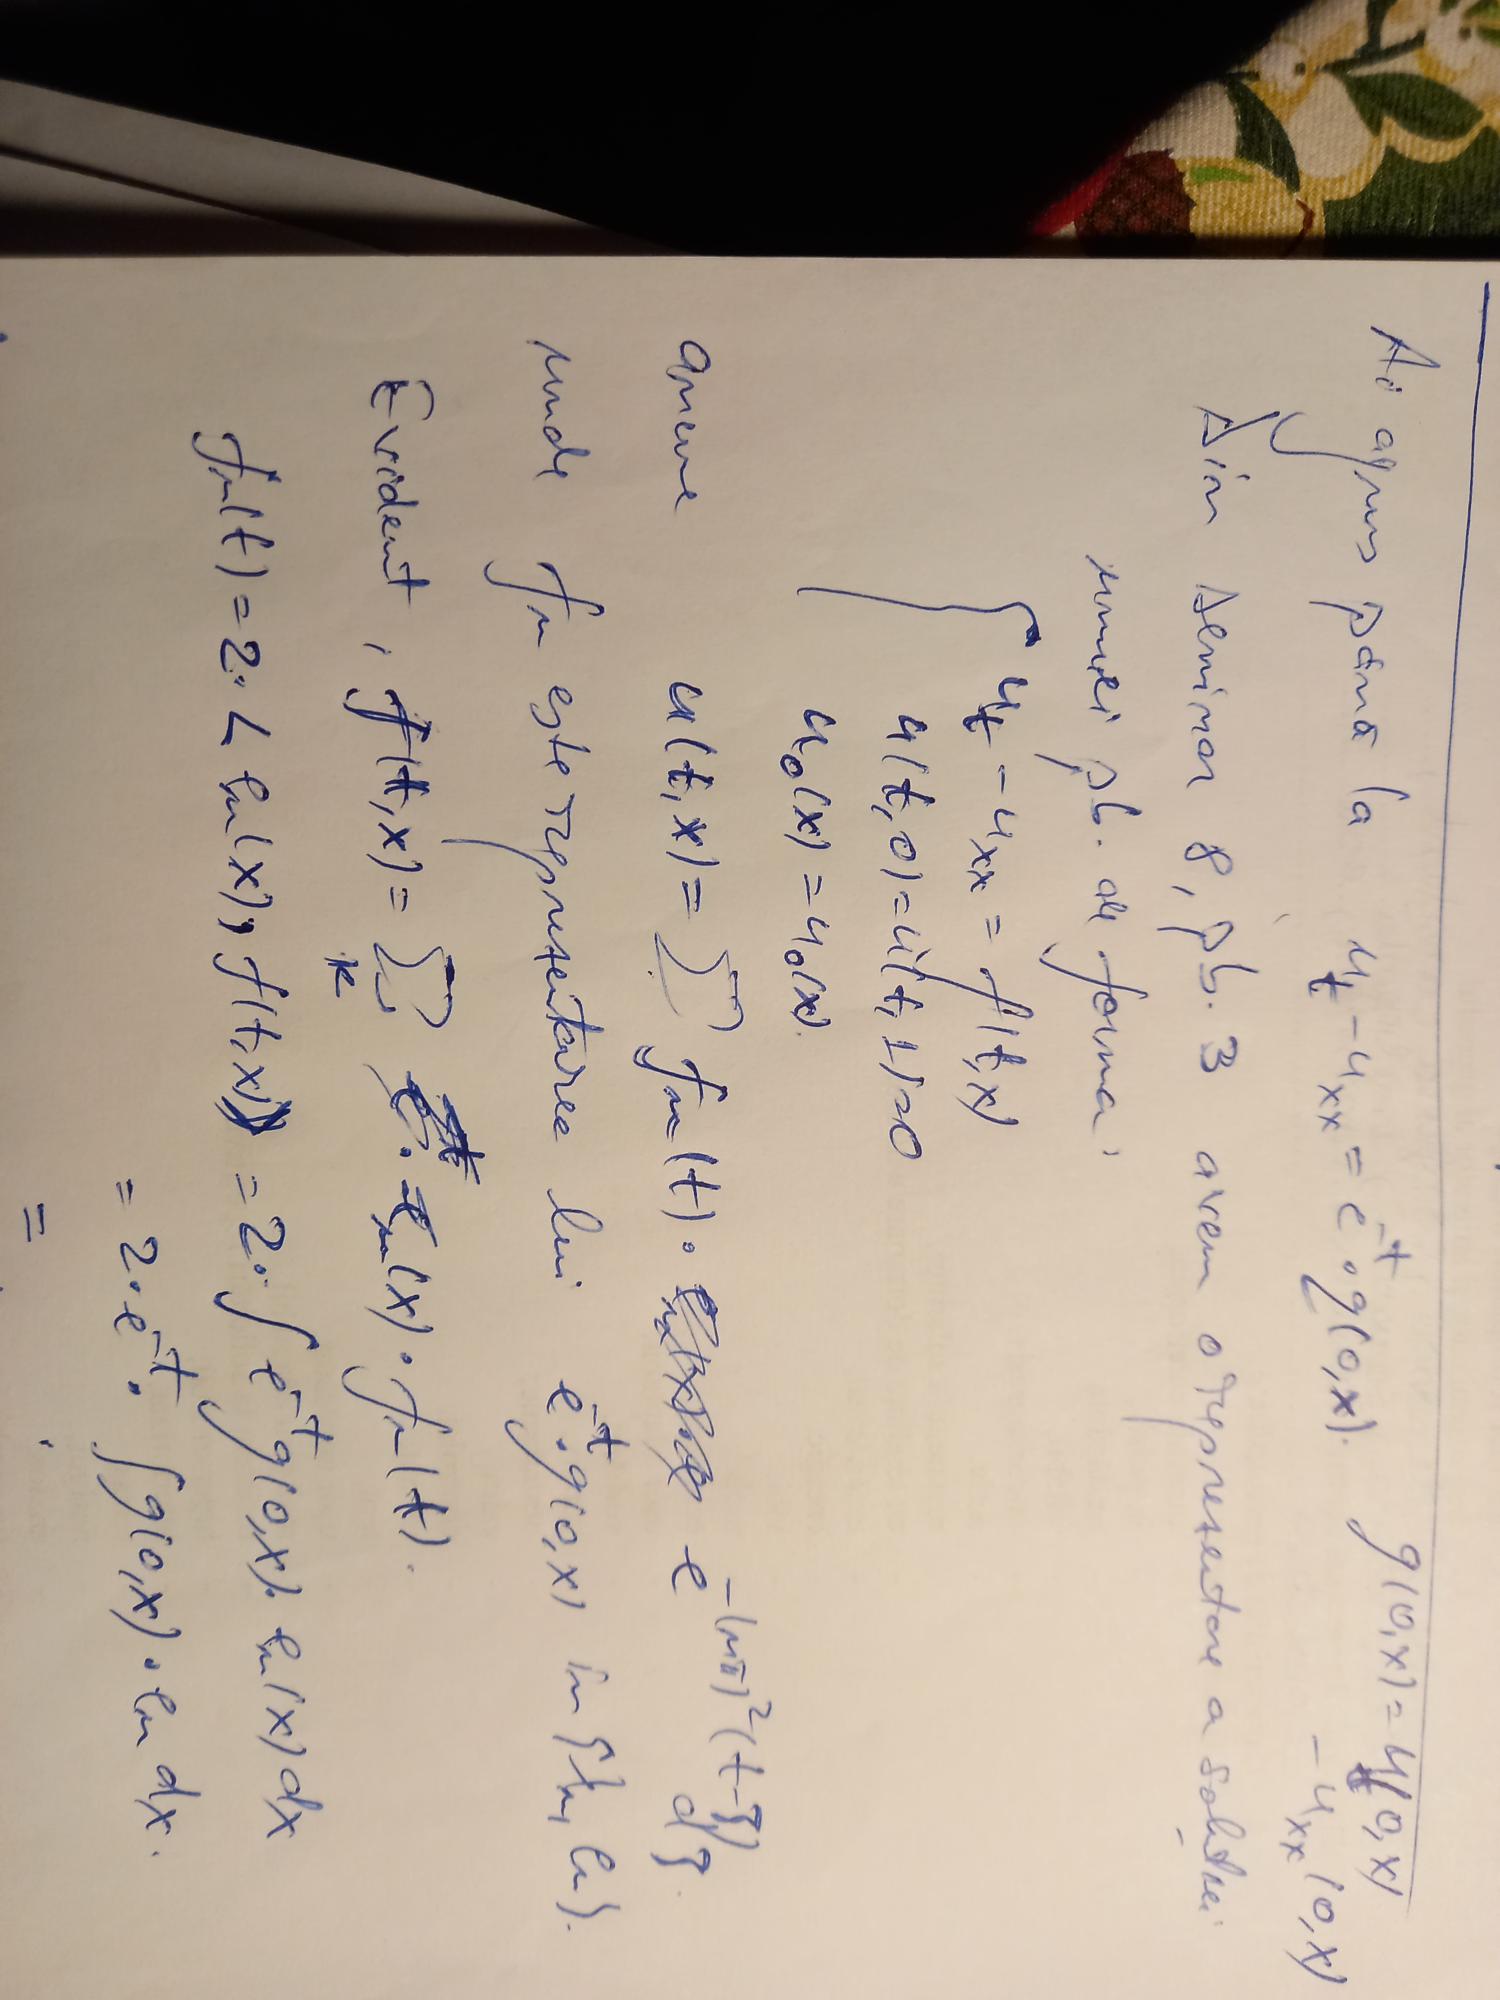 Ai ajuns până la u_t - u_xx = e^-t · g(0,x). g(0,x) = u_t(0,x)
- u_xx(0,x)
Din seminar 8, pb. 3 avem o reprezentare a soluției
unei pb. de forma:
u_t - u_xx = f(t,x)
u(t,0) = u(t,1) = 0
u_0(x) = u_0(x).
anume u(t,x) = ∑ f_n(t) · e^-(nπ)^2(t-ξ) dξ.
unde f_n este reprezentarea lui e^-t · g(0,x) în {λ_n, e_n}.
Evident, f(t,x) = ∑_k e_n(x) · f_n(t).
f_n(t) = 2 · < e_n(x), f(t,x)> = 2 · ∫ e^-t g(0,x) · e_n(x) dx
= 2 · e^-t · ∫ g(0,x) · e_n dx.
=